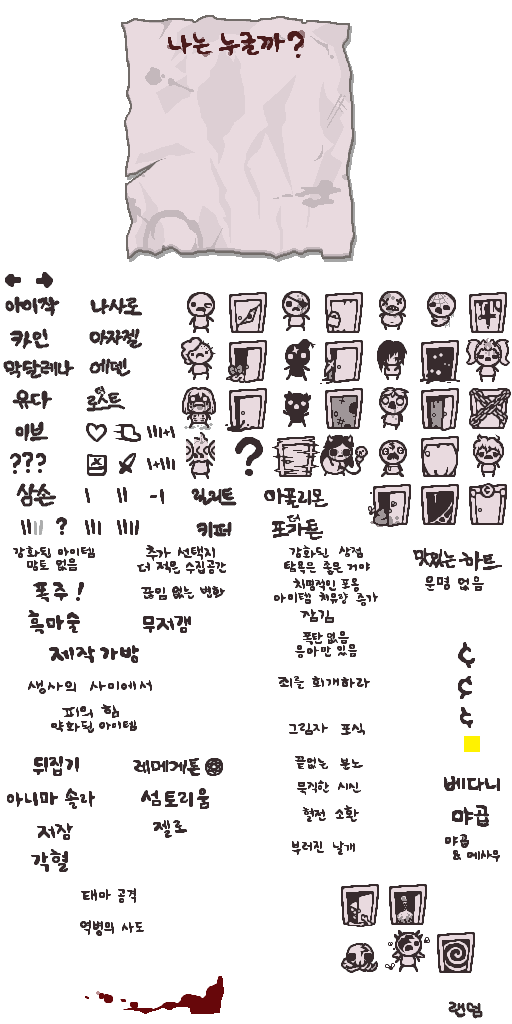 나는 누굴까?
아이작 나사로
카인 아자젤
막달레나 에덴
유다 더 로스트
이브 |||+|
??? |+|||
?
삼손 | || -| 릴리트 아폴리온
|||| ? ||| |||| 키퍼 더 포가튼
강화된 아이템
맘토 없음
추가 선택지
더 적은 수집공간
강화된 상점
탐욕은 좋은 거야
맛있는 하트
운명 없음
폭주!
끊임 없는 변화
치명적인 포옹
아이템 치유량 증가
흑마술 무저갱
잠김
폭탄 없음
응아만 있음
제작 가방
¢
생사의 사이에서
죄를 회개하라
¢
피의 힘
약화된 아이템
¢
그림자 포식
뒤집기 레메게톤
끝없는 분노
아니마 솔라 섬토리움
묵직한 시신
베다니
저장 젤로
혈전 소환
야곱
각혈
부러진 날개
야곱
& 에사우
태마 공격
역병의 사도
랜덤